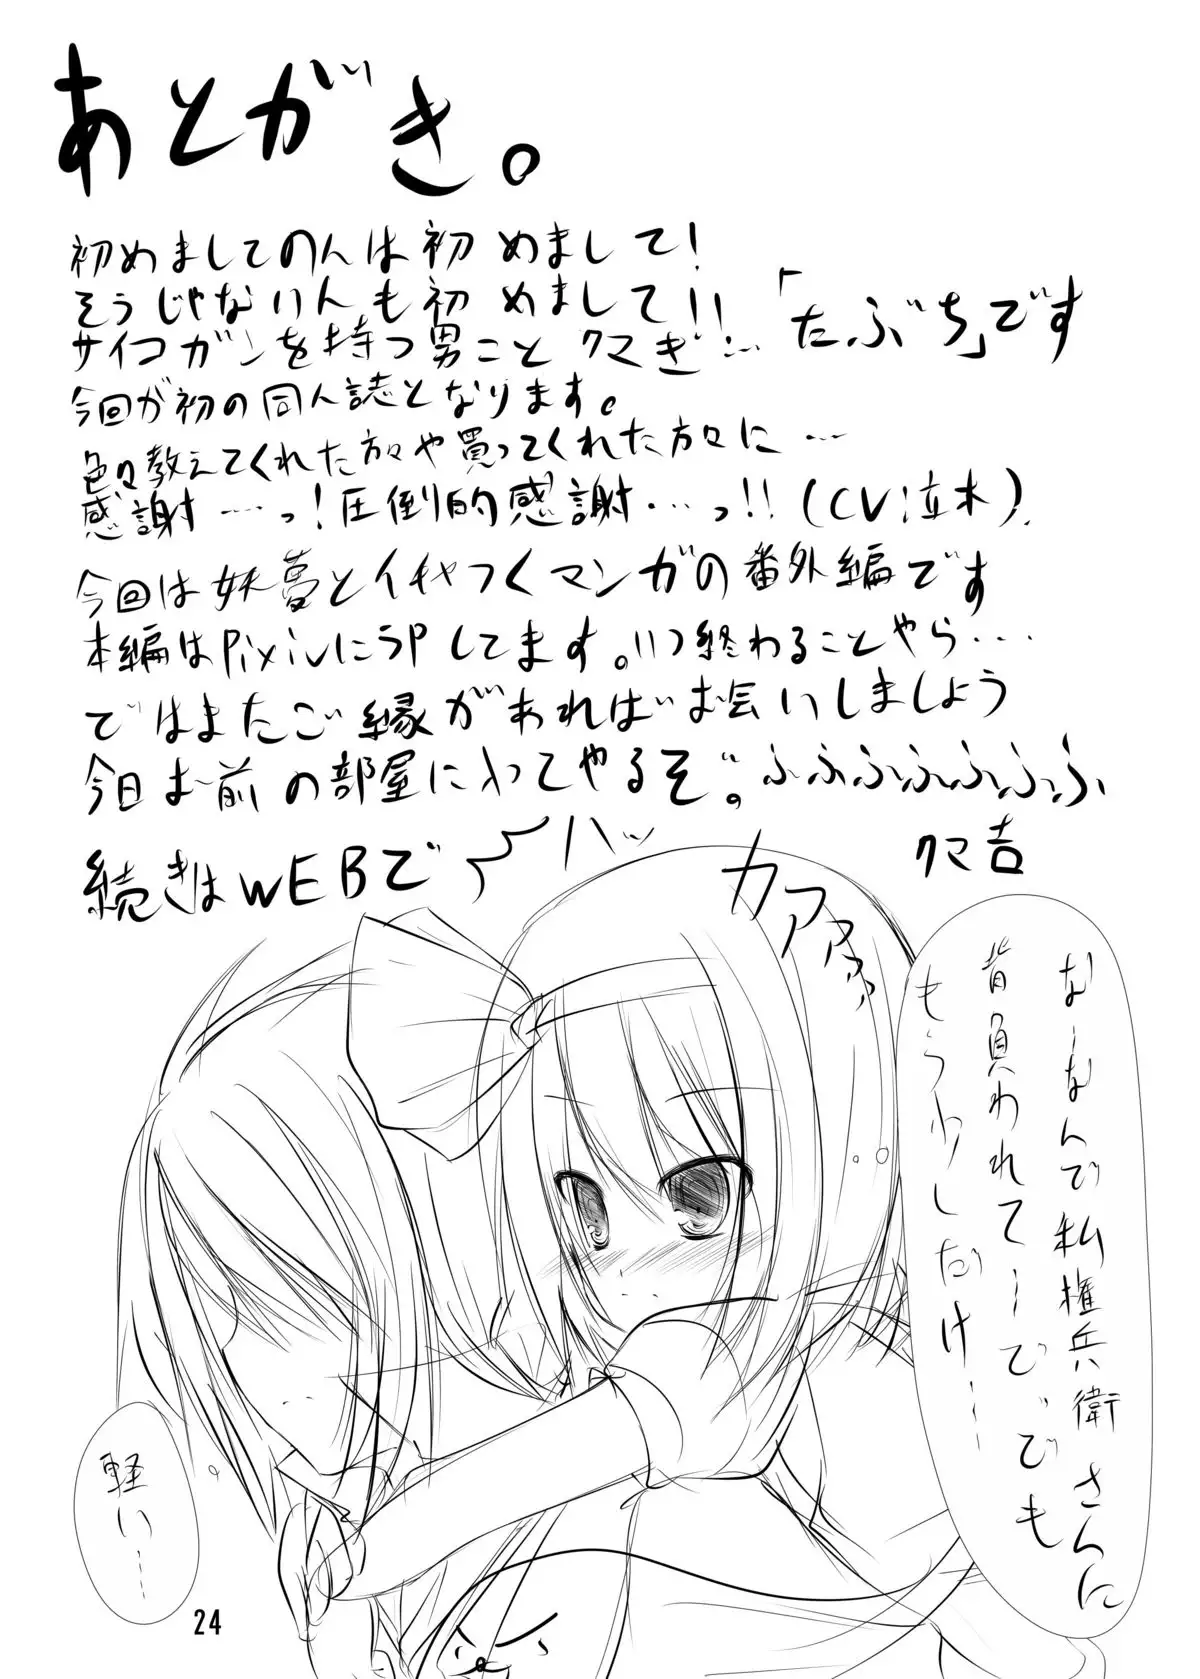 あとがき。
初めましてのんは初めまして!
そうじゃないんも初めまして!!
サイコガンを持つ男ことクマぎ!…
「たぶち」です
今回が初の同人誌となります。
色々教えてくれた方々や買ってくれた方々に…
感謝……っ!圧倒的感謝……っ!!(CV:立木)
今回は妖夢とイチャつくマンガの番外編です
本編はPixivにうPしてます。いつ終わることやら…
ではまたご縁があればお会いしましょう
今日お前の部屋に入ってやるぞ。ふふふふふふふふ
クマ吉
続きはWEBで
ハッ
カアアアア
なーなんで私権兵衛さんに
背負われてーで、でも
もう少しだけ……
軽い……
24